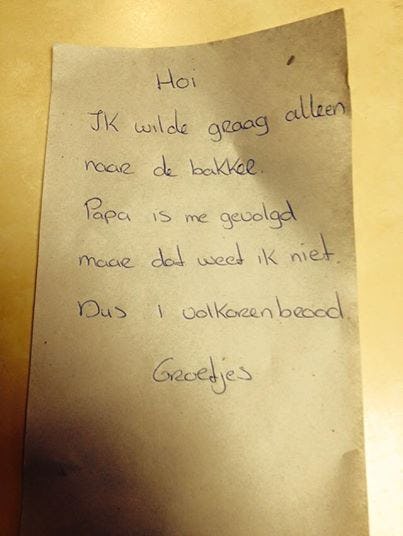 Hoi
IK wilde graag alleen
naar de bakker.
Papa is me gevolgd
maar dat weet ik niet.
Dus 1 volkorenbrood.
Groetjes